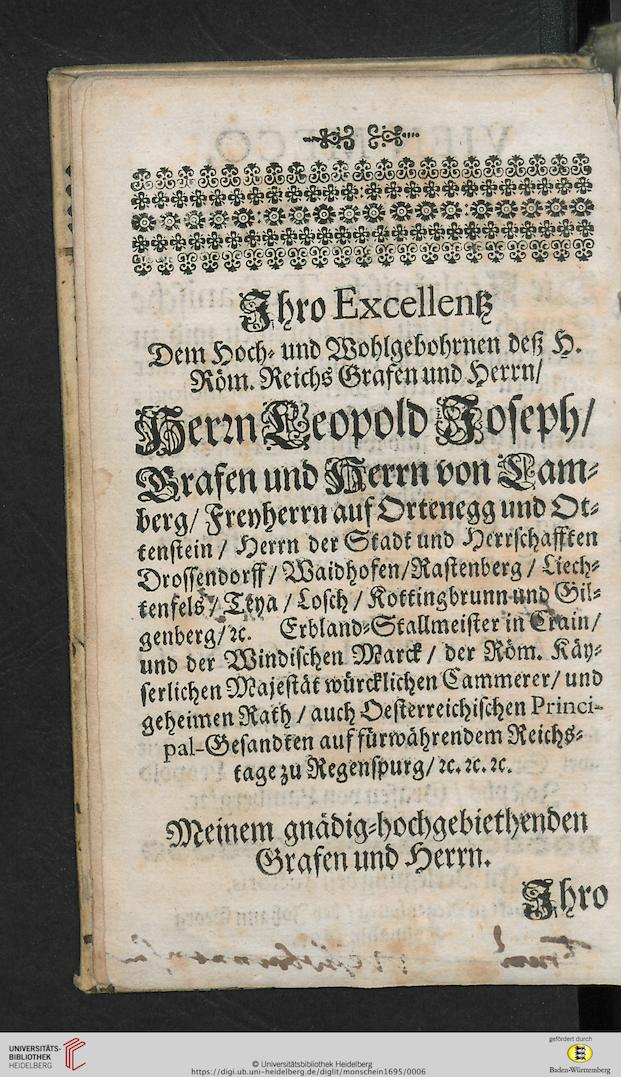 Ihro Excellentz
Dem Hoch- und Wohlgebohrnen deß H.
Röm. Reichs Grafen und Herrn/
Herrn Leopold Joseph/
Grafen und Herrn von Lam-
berg/ Freyherrn auf Ortenegg und Ot-
tenstein / Herrn der Stadt und Herrschafften
Drossendorff / Waidhofen/Rastenberg / Liech-
tenfels / Teya / Losch / Kottingbrunn und Gil-
genberg/ ꝛc. Erbland-Stallmeister in Crain/
und der Windischen Marck / der Röm. Käy-
serlichen Majestät würcklichen Cammerer/ und
geheimen Rath / auch Oesterreichischen Princi-
pal-Gesandten auf fürwährendem Reichs-
tage zu Regenspurg/ ꝛc. ꝛc. ꝛc.
Meinem gnädig-hochgebiethenden
Grafen und Herrn.
Ihro
UNIVERSITÄTS-
BIBLIOTHEK
HEIDELBERG
© Universitätsbibliothek Heidelberg
https://digi.ub.uni-heidelberg.de/diglit/monschein1695/0006
gefördert durch
Baden-Württemberg